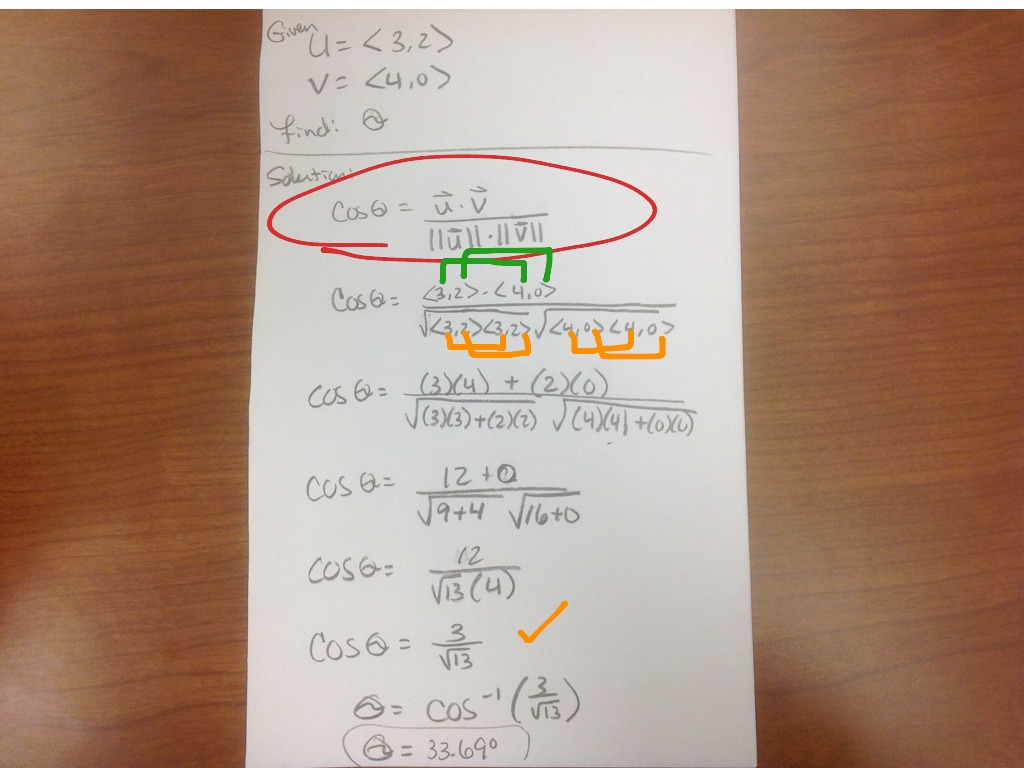 Given
U = <3,2>
V = <4,0>
find: θ
Solution:
Cosθ = u⃗ · v⃗ / ||u⃗|| · ||v⃗||
Cosθ = <3,2> · <4,0> / √<3,2><3,2> √<4,0><4,0>
Cosθ = (3)(4) + (2)(0) / √(3)(3)+(2)(2) √(4)(4)+(0)(0)
Cosθ = 12+0 / √9+4 √16+0
Cosθ = 12 / √13 (4)
Cosθ = 3 / √13
θ = cos⁻¹ (3/√13)
θ = 33.69°